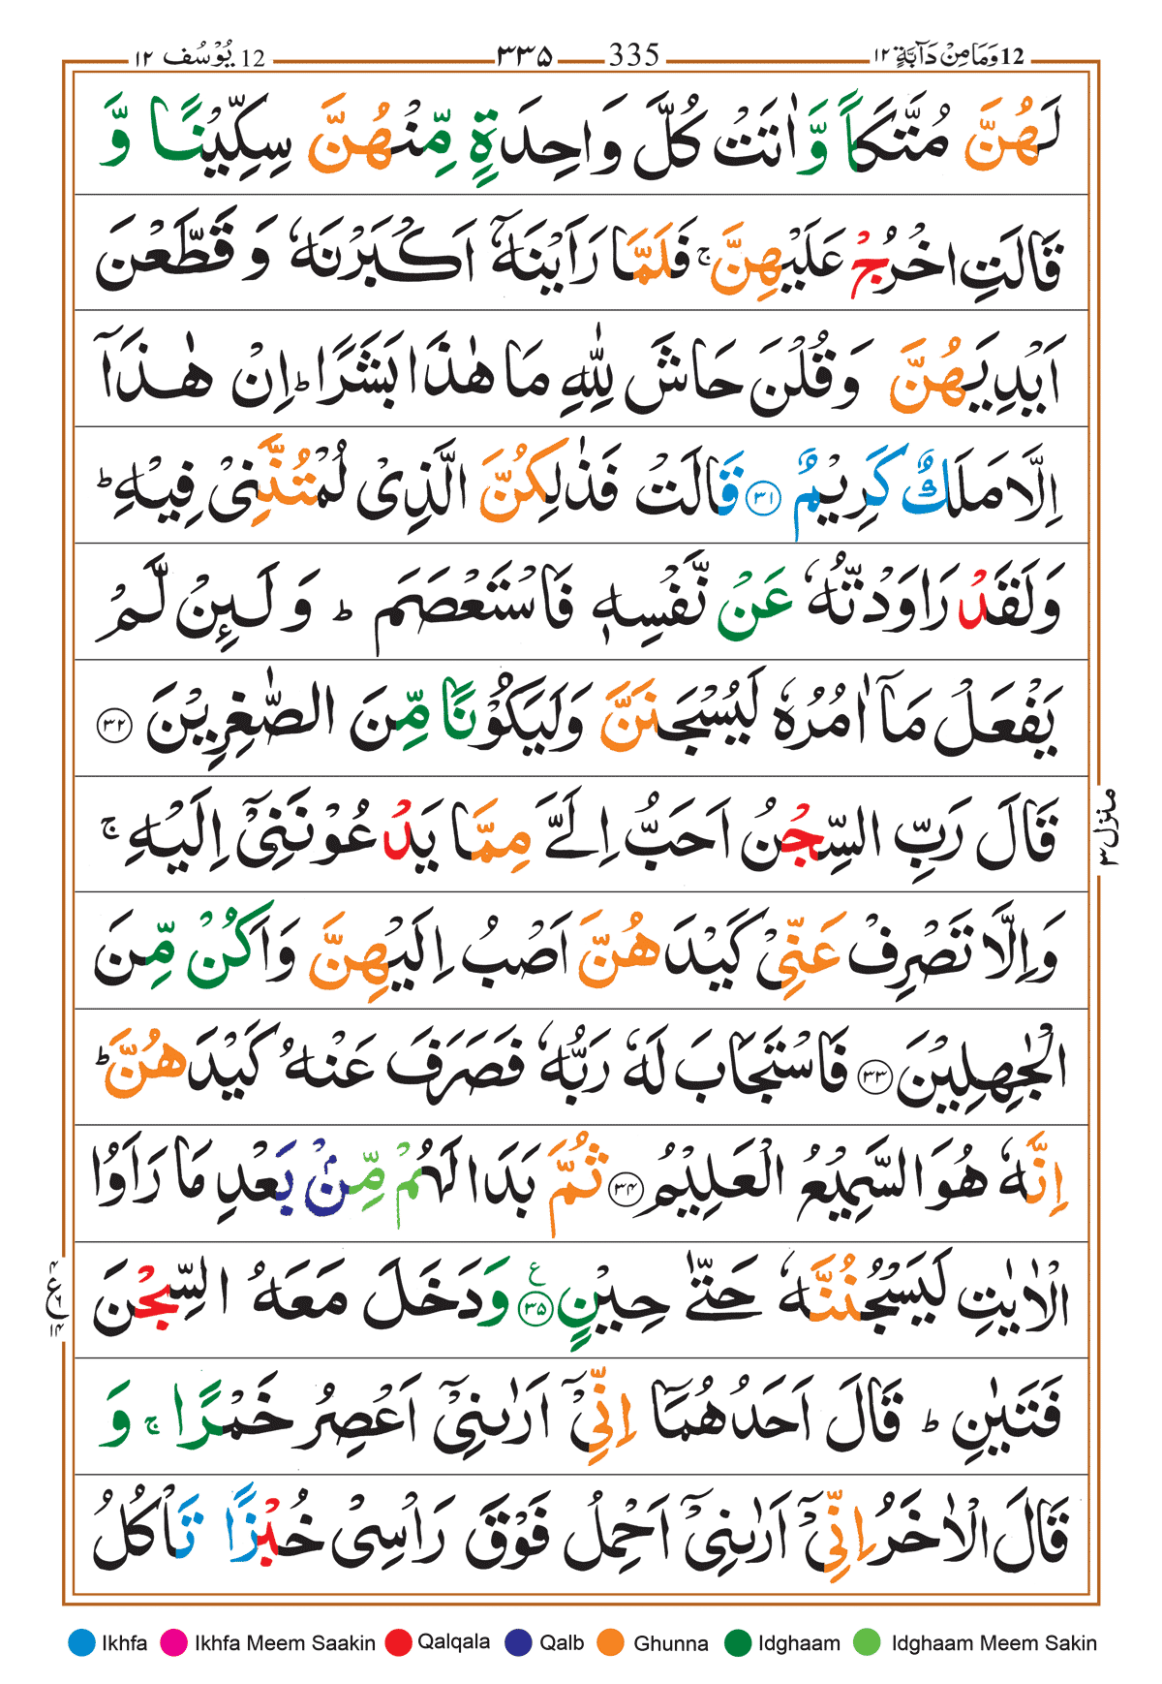 12 وَمَا مِنْ دَآبَّةٍ ١٢ 335 ٣٣٥ 12 يُوْسُف ١٢
لَهُنَّ مُتَّكَاً وَّاٰتَتْ كُلَّ وَاحِدَةٍ مِّنْهُنَّ سِكِّيْنًا وَّ
قَالَتِ اخْرُجْ عَلَيْهِنَّ ۚ فَلَمَّا رَاَيْنَهٗۤ اَكْبَرْنَهٗ وَقَطَّعْنَ
اَيْدِيَهُنَّ وَقُلْنَ حَاشَ لِلّٰهِ مَا هٰذَا بَشَرًا ؕ اِنْ هٰذَاۤ
اِلَّا مَلَكٌ كَرِيْمٌ ﴿٣١﴾ قَالَتْ فَذٰلِكُنَّ الَّذِیْ لُمْتُنَّنِیْ فِيْهِ ؕ
وَلَقَدْ رَاوَدْتُّهٗ عَنْ نَّفْسِهٖ فَاسْتَعْصَمَ ؕ وَلَئِنْ لَّمْ
يَفْعَلْ مَاۤ اٰمُرُهٗ لَيُسْجَنَنَّ وَلَيَكُوْنًا مِّنَ الصّٰغِرِيْنَ ﴿٣٢﴾
قَالَ رَبِّ السِّجْنُ اَحَبُّ اِلَیَّ مِمَّا يَدْعُوْنَنِیْۤ اِلَيْهِ ۚ
وَاِلَّا تَصْرِفْ عَنِّیْ كَيْدَهُنَّ اَصْبُ اِلَيْهِنَّ وَاَكُنْ مِّنَ
الْجٰهِلِيْنَ ﴿٣٣﴾ فَاسْتَجَابَ لَهٗ رَبُّهٗ فَصَرَفَ عَنْهُ كَيْدَهُنَّ ؕ
اِنَّهٗ هُوَ السَّمِيْعُ الْعَلِيْمُ ﴿٣٤﴾ ثُمَّ بَدَا لَهُمْ مِّنْۢ بَعْدِ مَا رَاَوُا
الْاٰيٰتِ لَيَسْجُنُنَّهٗ حَتّٰی حِيْنٍ ﴿٣٥﴾ ع وَدَخَلَ مَعَهُ السِّجْنَ
فَتَيٰنِ ؕ قَالَ اَحَدُهُمَاۤ اِنِّیْۤ اَرٰىنِیْۤ اَعْصِرُ خَمْرًا ۚ وَ
قَالَ الْاٰخَرُ اِنِّیْۤ اَرٰىنِیْۤ اَحْمِلُ فَوْقَ رَاْسِیْ خُبْزًا تَاْكُلُ
منزل ٣
٤ ع ٦ ١٤
Ikhfa Ikhfa Meem Saakin Qalqala Qalb Ghunna Idghaam Idghaam Meem Sakin